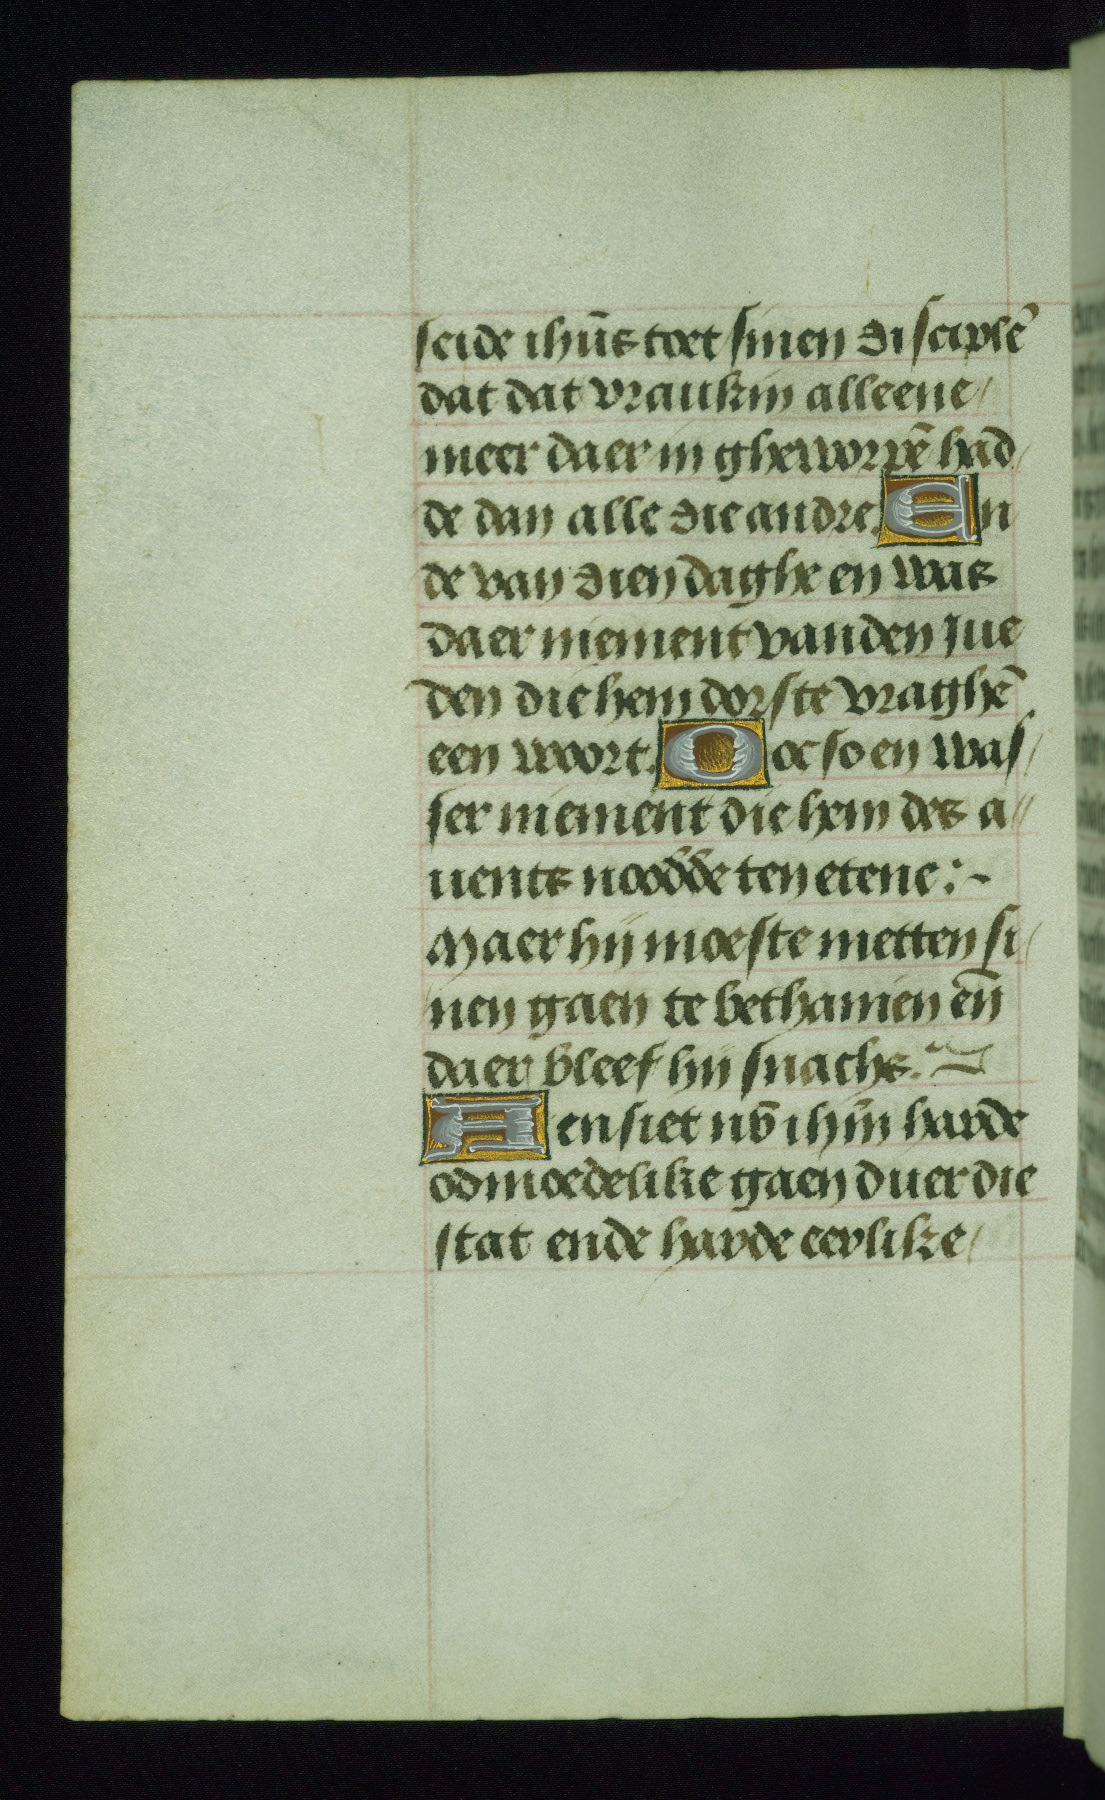 seide ihūs toet sinen disciplē
dat dat vraukin alleene/
meer daer in gheworpē had/
de dan alle die andre. En
de van dien daghe en was
daer niement vanden Jue
den die hem dorste vraghē
een woort. Oec so en was/
ser niement die hem des a//
uents noodde ten etene:~
Maer hij moeste metten si/
nen gaen te bethanien eñ
daer bleef hij snachs.~
Aensiet nv̄ ihm̄ harde
odmoedelike gaen duer die
stat ende harde eerlike/